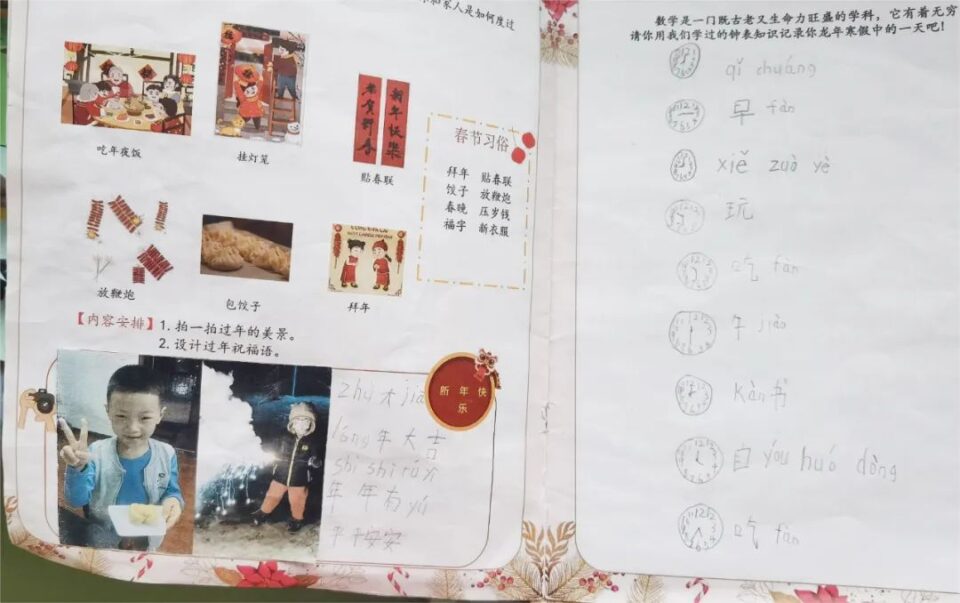 家人是如何度过
吃年夜饭
挂灯笼
恭贺新春
新年快乐
贴春联
春节习俗
拜年 贴春联
饺子 放鞭炮
春晚 压岁钱
福字 新衣服
放鞭炮
包饺子
拜年
【内容安排】1. 拍一拍过年的美景。
2. 设计过年祝福语。
新年快
乐
zhù 大 jiā
lóng 年 大 吉
shì shì rú
年 年 有 yú
平 平 安安
数学是一门既古老又生命力旺盛的学科，它有着无穷
请你用我们学过的钟表知识记录你龙年寒假中的一天吧！
qǐ chuáng
早 fàn
xiě zuò yè
玩
吃 fàn
午 jiào
kàn 书
自 yóu huó dòng
吃 fàn